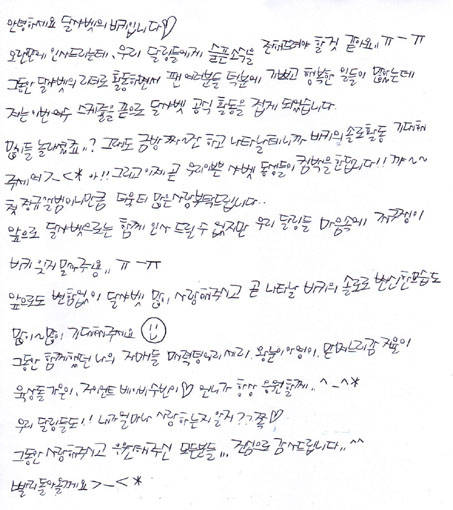 안녕하세요 달샤벳의 비키입니다♡
오랜만에 인사드리는데, 우리 달링들에게 슬픈소식을 전해드려야 할것 같아요,, ㅠ-ㅠ
그동안 달샤벳의 리더로 활동하면서 팬여러분들 덕분에 기쁘고 행복한 일들이 많았는데
저는 이번 여수 스케줄을 끝으로 달샤벳 공식 활동을 접게 되었습니다.
많이들 놀래셨죠,,? 그래도 금방 짜잔 하고 나타날테니까 비키의 솔로활동 기대해
주세여 >_<* 아!! 그리고 이제 곧 우리 이쁜 샤벳 동생들이 컴백을 한답니다!! 꺄~~
첫 정규앨범이니만큼 더욱더 많은 사랑부탁드립니다..
앞으로 달샤벳으로는 함께 인사 드릴수 없지만 우리 달링들 마음속에
비키 잊지 말아주세용,, ㅠ-ㅠ
앞으로도 변함없이 달샤벳 많이 사랑해주시고 곧 나타날 비키의 솔로로 변신한모습도
많이~많이 기대해주세요
그동안 함께했던 나의 자매들 매력덩어리세리, 왕눈이아영이, 지율이
가은이, 수빈이♡ 언니가 항상 응원할께.. ^-^*
우리 달링들도!! 내가얼마나 사랑하는지 알지?? 쪽♡
그동안 사랑해주시고 응원해주신 모든분들,,, 진심으로 감사드립니다,, ^^
빨리돌아올께요 >_<*